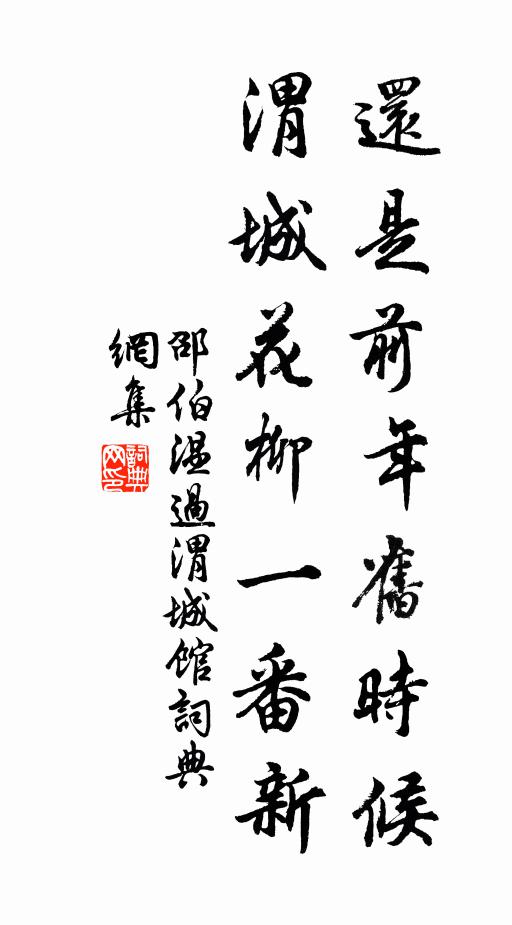 還是前年舊時候
渭城花柳一番新
邵伯溫過渭城館詞典
網集
詞典
网印